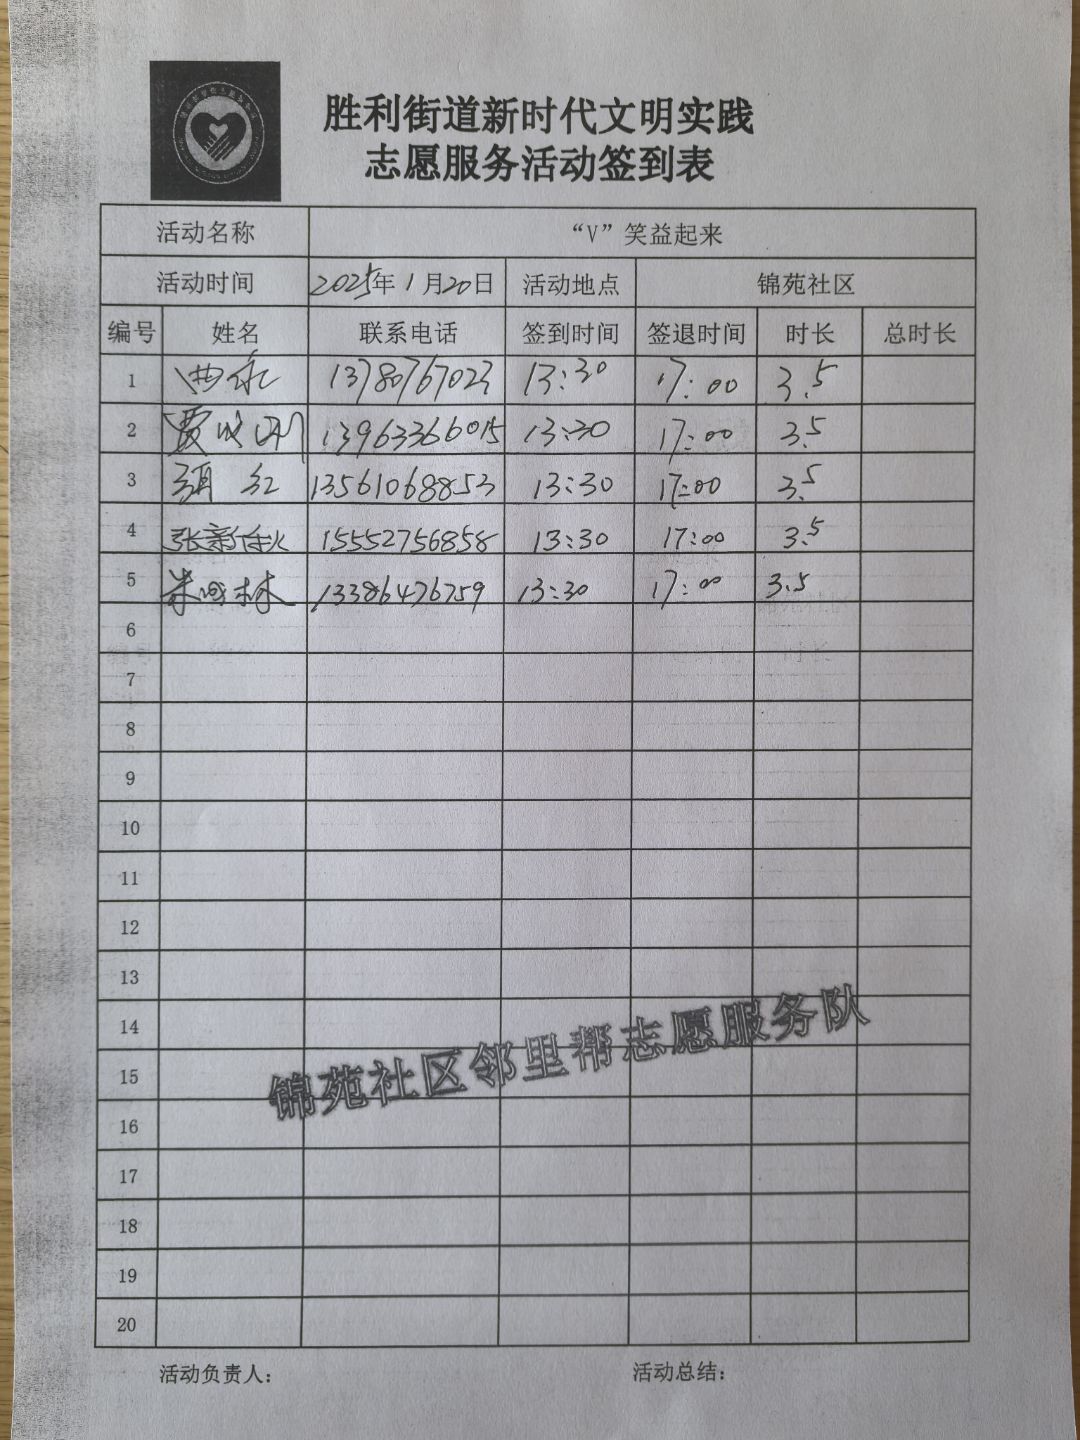 胜利街道新时代文明实践
志愿服务活动签到表
活动名称 “V”笑益起来
活动时间 2025年1月20日 活动地点 锦苑社区
编号 姓名 联系电话 签到时间 签退时间 时长 总时长
1 13780767023 13:30 17:00 3.5
2 贾 13963366015 13:30 17:00 3.5
3 红 13561068853 13:30 17:00 3.5
4 张新秋 15552756858 13:30 17:00 3.5
5 朱 林 13386476759 13:30 17:00 3.5
6
7
8
9
10
11
12
13
14
锦苑社区邻里帮志愿服务队
15
16
17
18
19
20
活动负责人: 活动总结: